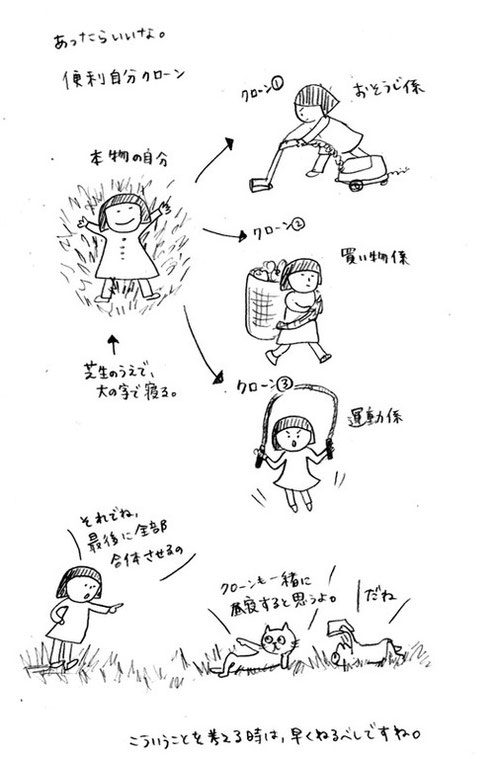 あったらいいな。
便利自分クローン
本物の自分
芝生のうえで、
大の字で寝る。
クローン①
おそうじ係
クローン②
買い物係
クローン③
運動係
それでね、
最後に全部
合体させるの
クローンも一緒に
昼寝すると思うよ。
だね
こういうことを考える時は、早くねるべしですね。